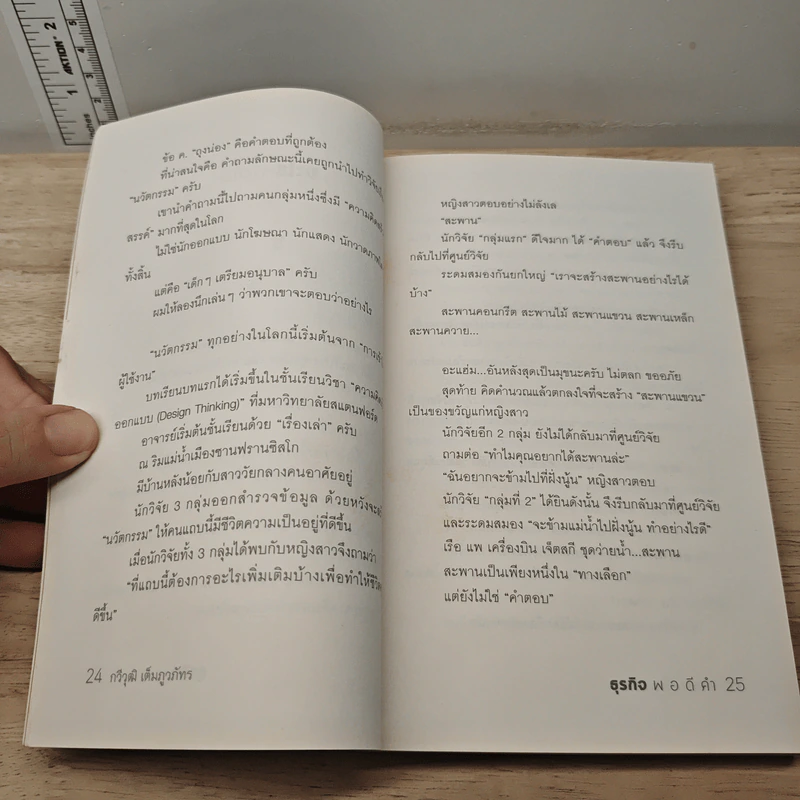 2
1
AKTION
inches
ข้อ ค. "ถุงน่อง" คือคำตอบที่ถูกต้อง
ที่น่าสนใจคือ คำถามลักษณะนี้เคยถูกนำไปทำวิจัย
"นวัตกรรม" ครับ
เขานำคำถามนี้ไปถามคนกลุ่มหนึ่งซึ่งมี "ความคิด
สรรค์" มากที่สุดในโลก
ไม่ใช่นักออกแบบ นักโฆษณา นักแสดง นักวาดภาพ
ทั้งสิ้น
แต่คือ "เด็กๆ เตรียมอนุบาล" ครับ
ผมให้ลองนึกเล่นๆ ว่าพวกเขาจะตอบว่าอย่างไร
"นวัตกรรม" ทุกอย่างในโลกนี้เริ่มต้นจาก
ผู้ใช้งาน"
บทเรียนบทแรกได้เริ่มขึ้นในชั้นเรียนวิชา "ความคิด
ออกแบบ (Design Thinking)" ที่มหาวิทยาลัยสแตนฟอร์ด
อาจารย์เริ่มต้นชั้นเรียนด้วย "เรื่องเล่า" ครับ
ณ ริมแม่น้ำเมืองซานฟรานซิสโก
มีบ้านหลังน้อยกับสาววัยกลางคนอาศัยอยู่
นักวิจัย 3 กลุ่มออกสำรวจข้อมูล ด้วยหวังจะ
"นวัตกรรม" ให้คนแถบนี้มีชีวิตความเป็นอยู่ที่ดีขึ้น
เมื่อนักวิจัยทั้ง 3 กลุ่มได้พบกับหญิงสาวจึงถามว่า
"ที่แถบนี้ต้องการอะไรเพิ่มเติมบ้างเพื่อทำให้
ดีขึ้น"
24 กวีวุฒิ เต็มภูวภัทร
หญิงสาวตอบอย่างไม่ลังเล
"สะพาน"
นักวิจัย "กลุ่มแรก" ดีใจมาก ได้ "คำตอบ" แล้ว จึงรีบ
กลับไปที่ศูนย์วิจัย
ระดมสมองกันยกใหญ่ "เราจะสร้างสะพานอย่างไรได้
บ้าง"
สะพานคอนกรีต สะพานไม้ สะพานแขวน สะพานเหล็ก
สะพานควาย...
อะแฮ่ม...อันหลังสุดเป็นมุขนะครับ ไม่ตลก ขออภัย
สุดท้าย คิดคำนวณแล้วตกลงใจที่จะสร้าง "สะพานแขวน"
เป็นของขวัญแก่หญิงสาว
นักวิจัยอีก 2 กลุ่ม ยังไม่ได้กลับมาที่ศูนย์วิจัย
ถามต่อ "ทำไมคุณอยากได้สะพานล่ะ"
"ฉันอยากจะข้ามไปที่ฝั่งนู้น" หญิงสาวตอบ
นักวิจัย "กลุ่มที่ 2" ได้ยินดังนั้น จึงรีบกลับมาที่ศูนย์วิจัย
และระดมสมอง "จะข้ามแม่น้ำไปฝั่งนู้น ทำอย่างไรดี"
เรือ แพ เครื่องบิน เจ็ตสกี ชุดว่ายน้ำ...สะพาน
สะพานเป็นเพียงหนึ่งใน "ทางเลือก"
แต่ยังไม่ใช่ "คำตอบ"
ธุรกิจ พ อ ดี คำ 25